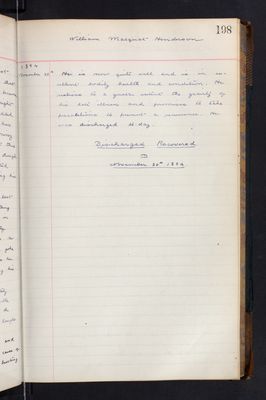 198
William Henderson
1894
November 30th He is now quite well and is in ex-
cellent bodily health and condition. He
realises to a great extent the gravity of
his late illness and promises to take
precautions to prevent a recurrence. He
was discharged to-day.
Discharged Recovered
November 30th 1894